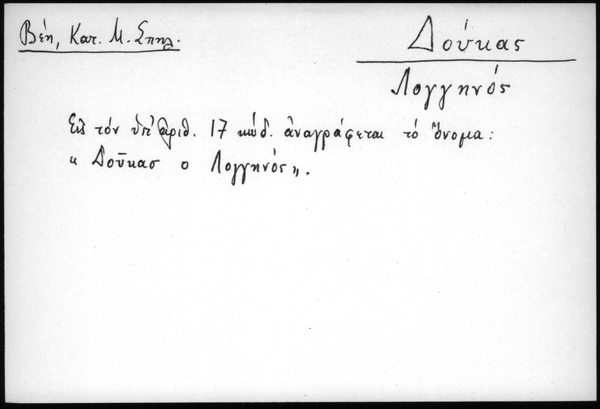 Βέη, Κατ. Μ. Σπηλ.
Δούκας
Λογγηνός
Εἰς τόν ὑπ' ἀριθ. 17 κώδ. ἀναγράφεται τό ὄνομα:
« Δοῦκασ ο Λογγηνός».